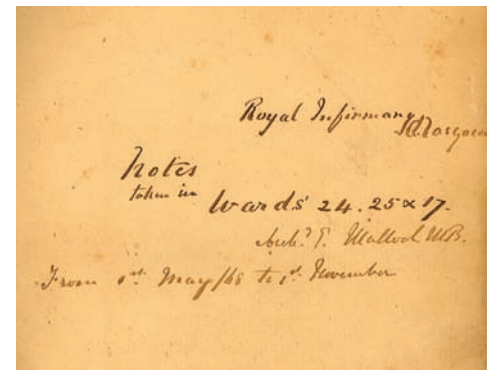 Royal Infirmary Glasgow
Notes
taken in
Wards 24. 25 & 17.
Archd. E. Malloch M.B.
From 1st. May/68 to 1st. November